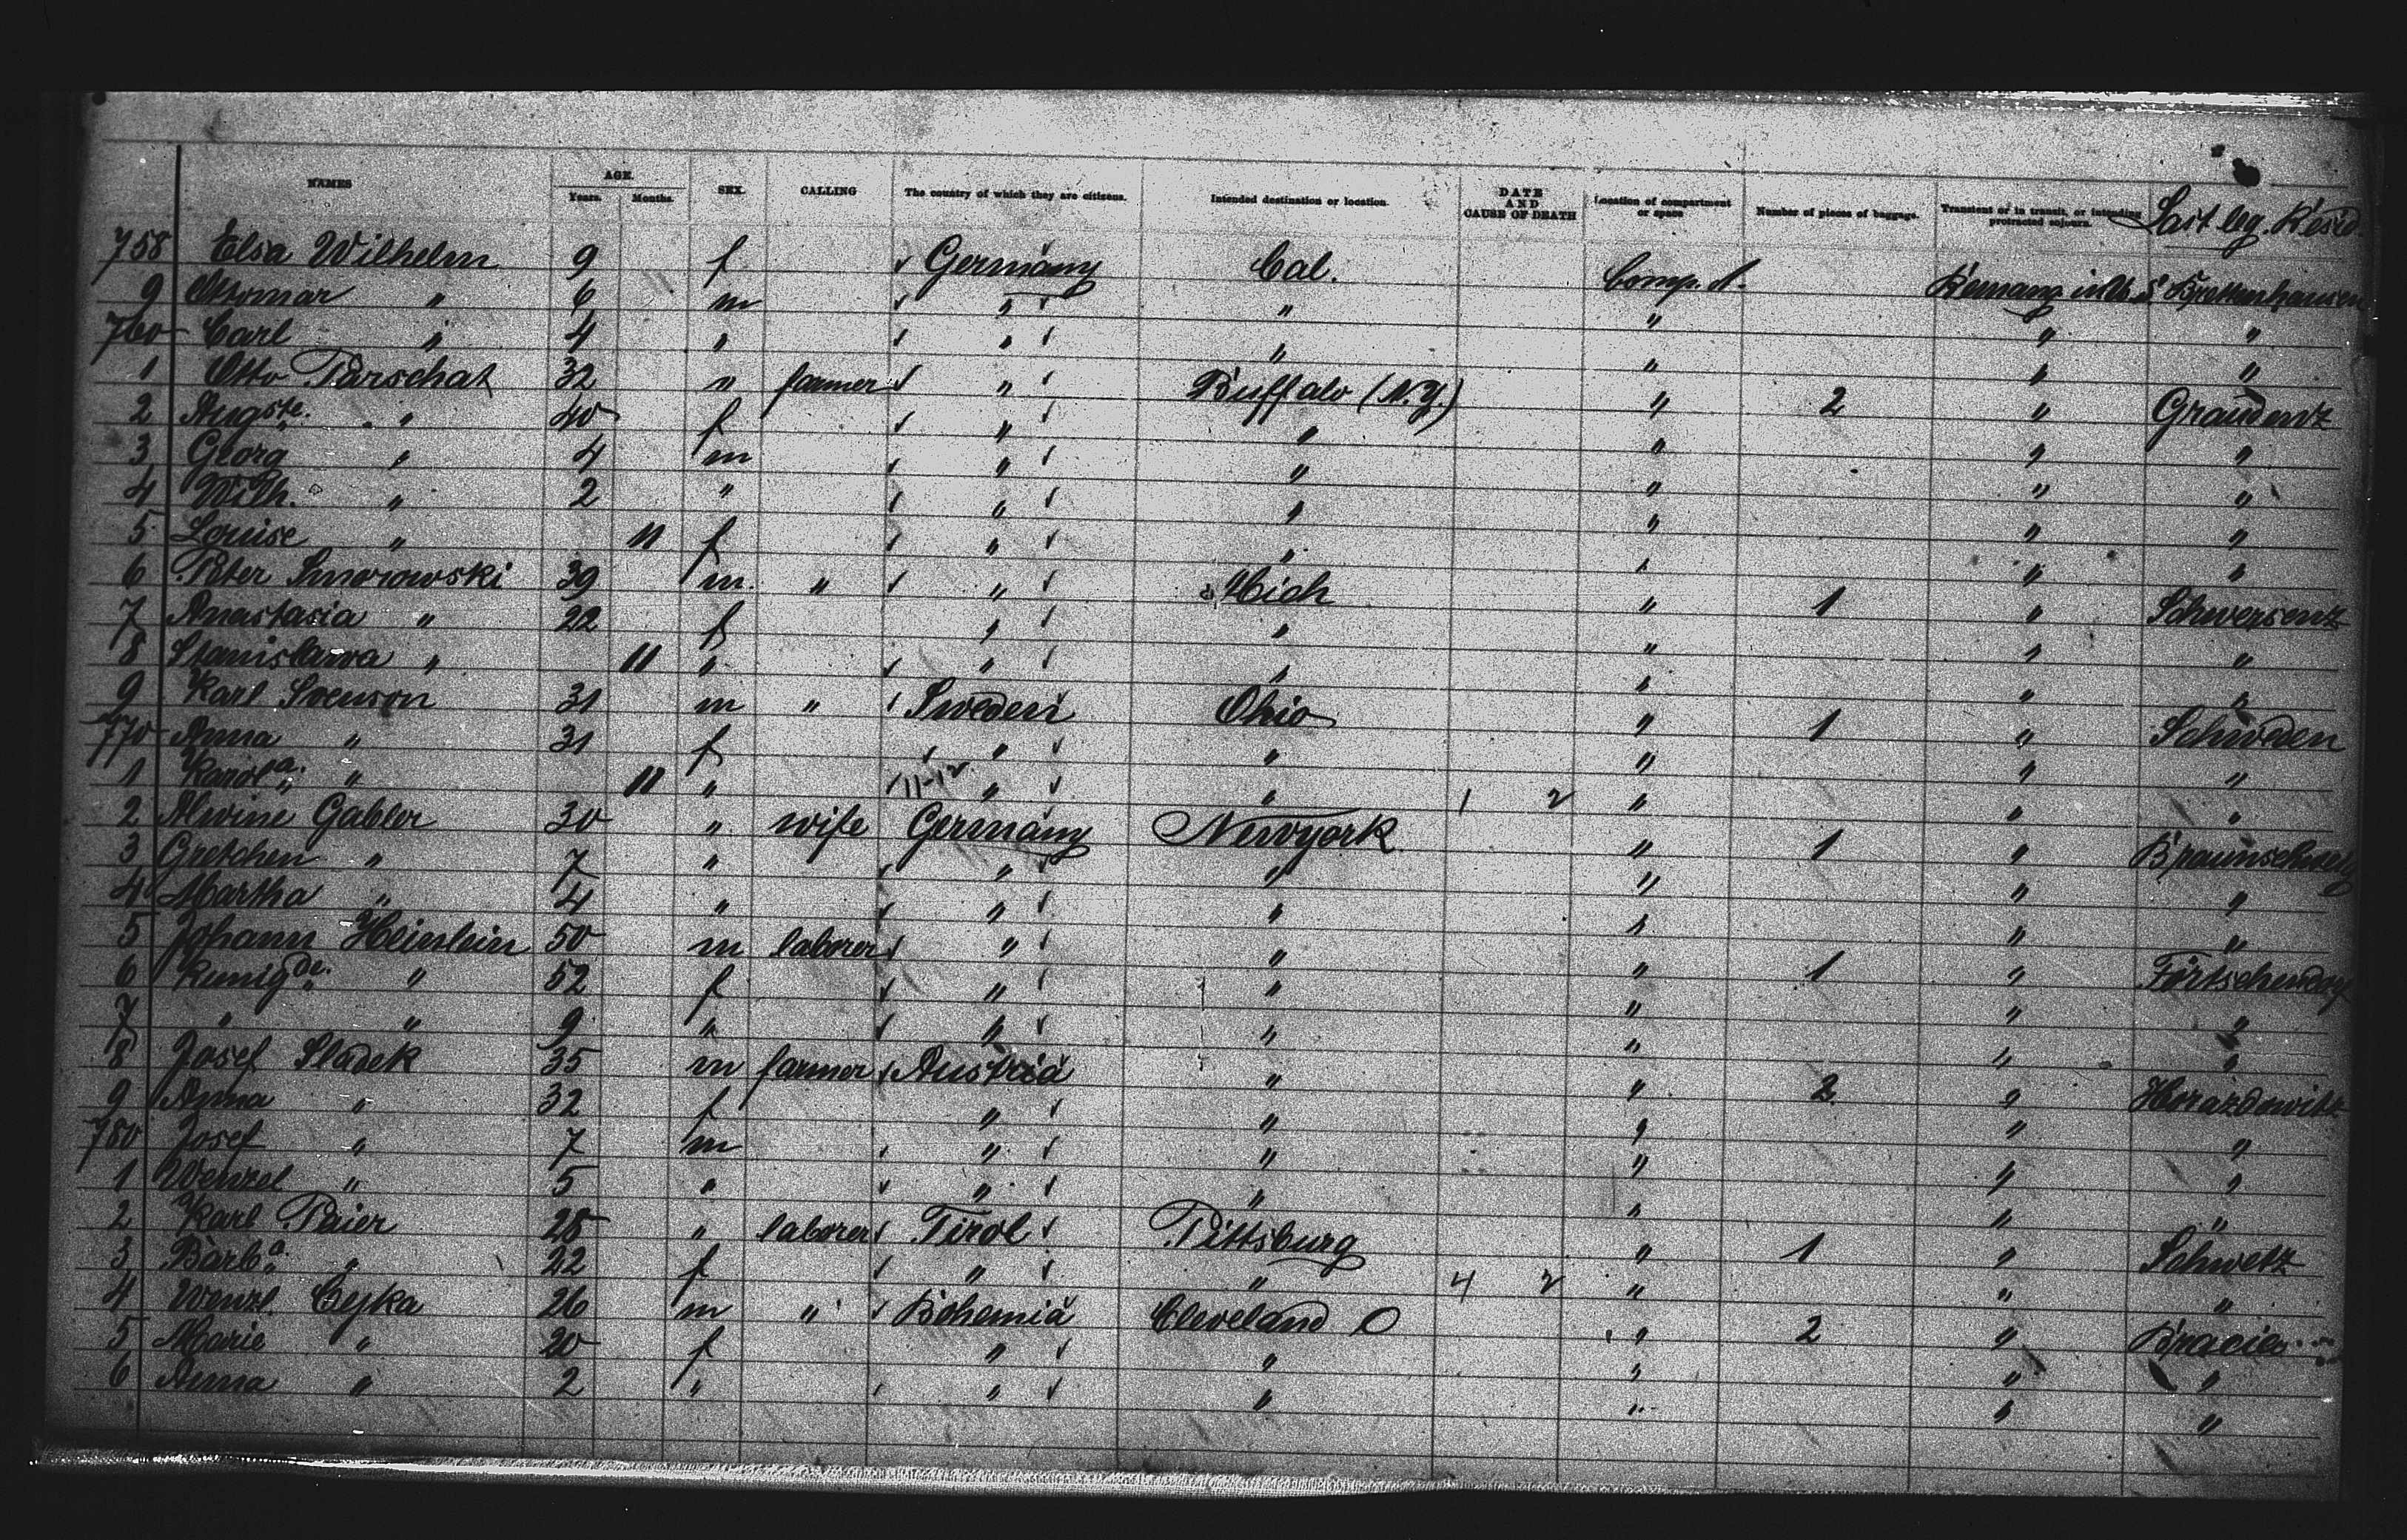 NAMES AGE. Years. Months. SEX. CALLING The country of which they are citizens. Intended destination or location. DATE AND CAUSE OF DEATH Location of compartment or space Number of pieces of baggage. Transient or in transit, or intending protracted sojourn. Last leg. Resid.
758 Elsa Wilhelm 9 f Germany Cal. Comp. 1.
9 Ottomar " 6 m " " " " "
760 Carl " 4 " " " " " "
1 Otto Parschat 32 " farmer " Buffalo (N.Y.) " 2 " Graudenz
2 Augste. " 40 f " " " " "
3 Georg " 4 m " " " " "
4 Wilh. " 2 " " " " " "
5 Louise " 11 f " " " " "
6 Peter Smorowski 39 m. " " Mich " 1 " Schwersenz
7 Anastasia " 22 f " " " " "
8 Stanislawa " 11 " " " " " "
9 Karl Svenson 31 m " Sweden Ohio " 1 " Schweden
770 Anna " 31 f " " " " "
1 Karola. " 11 " 11-12 " " 1 2 " " "
2 Alwine Gabler 30 " wife Germany Newyork " 1 " Braunschweig
3 Gretchen " 7 " " " " " "
4 Martha " 4 " " " " " "
5 Johann Heinlein 50 m laborer " " " 1 " Förtschendorf
6 Kunigde. " 52 f " " " " "
7 " " 9 " " " " " "
8 Josef Sladek 35 m farmer Austria " " 2 " Horazdowitz
9 Anna " 32 f " " " " "
780 Josef " 7 m " " " " "
1 Wenzel " 5 " " " " " "
2 Karl Paier 28 " laborer Tirol Pittsburg " 1 " Schwetz
3 Barba. " 22 f " " 4 2 " " "
4 Wenzl. Cejka 26 m " Bohemia Cleveland O " 2 "
5 Marie " 20 f " " " " "
6 Anna " 2 " " " " " "